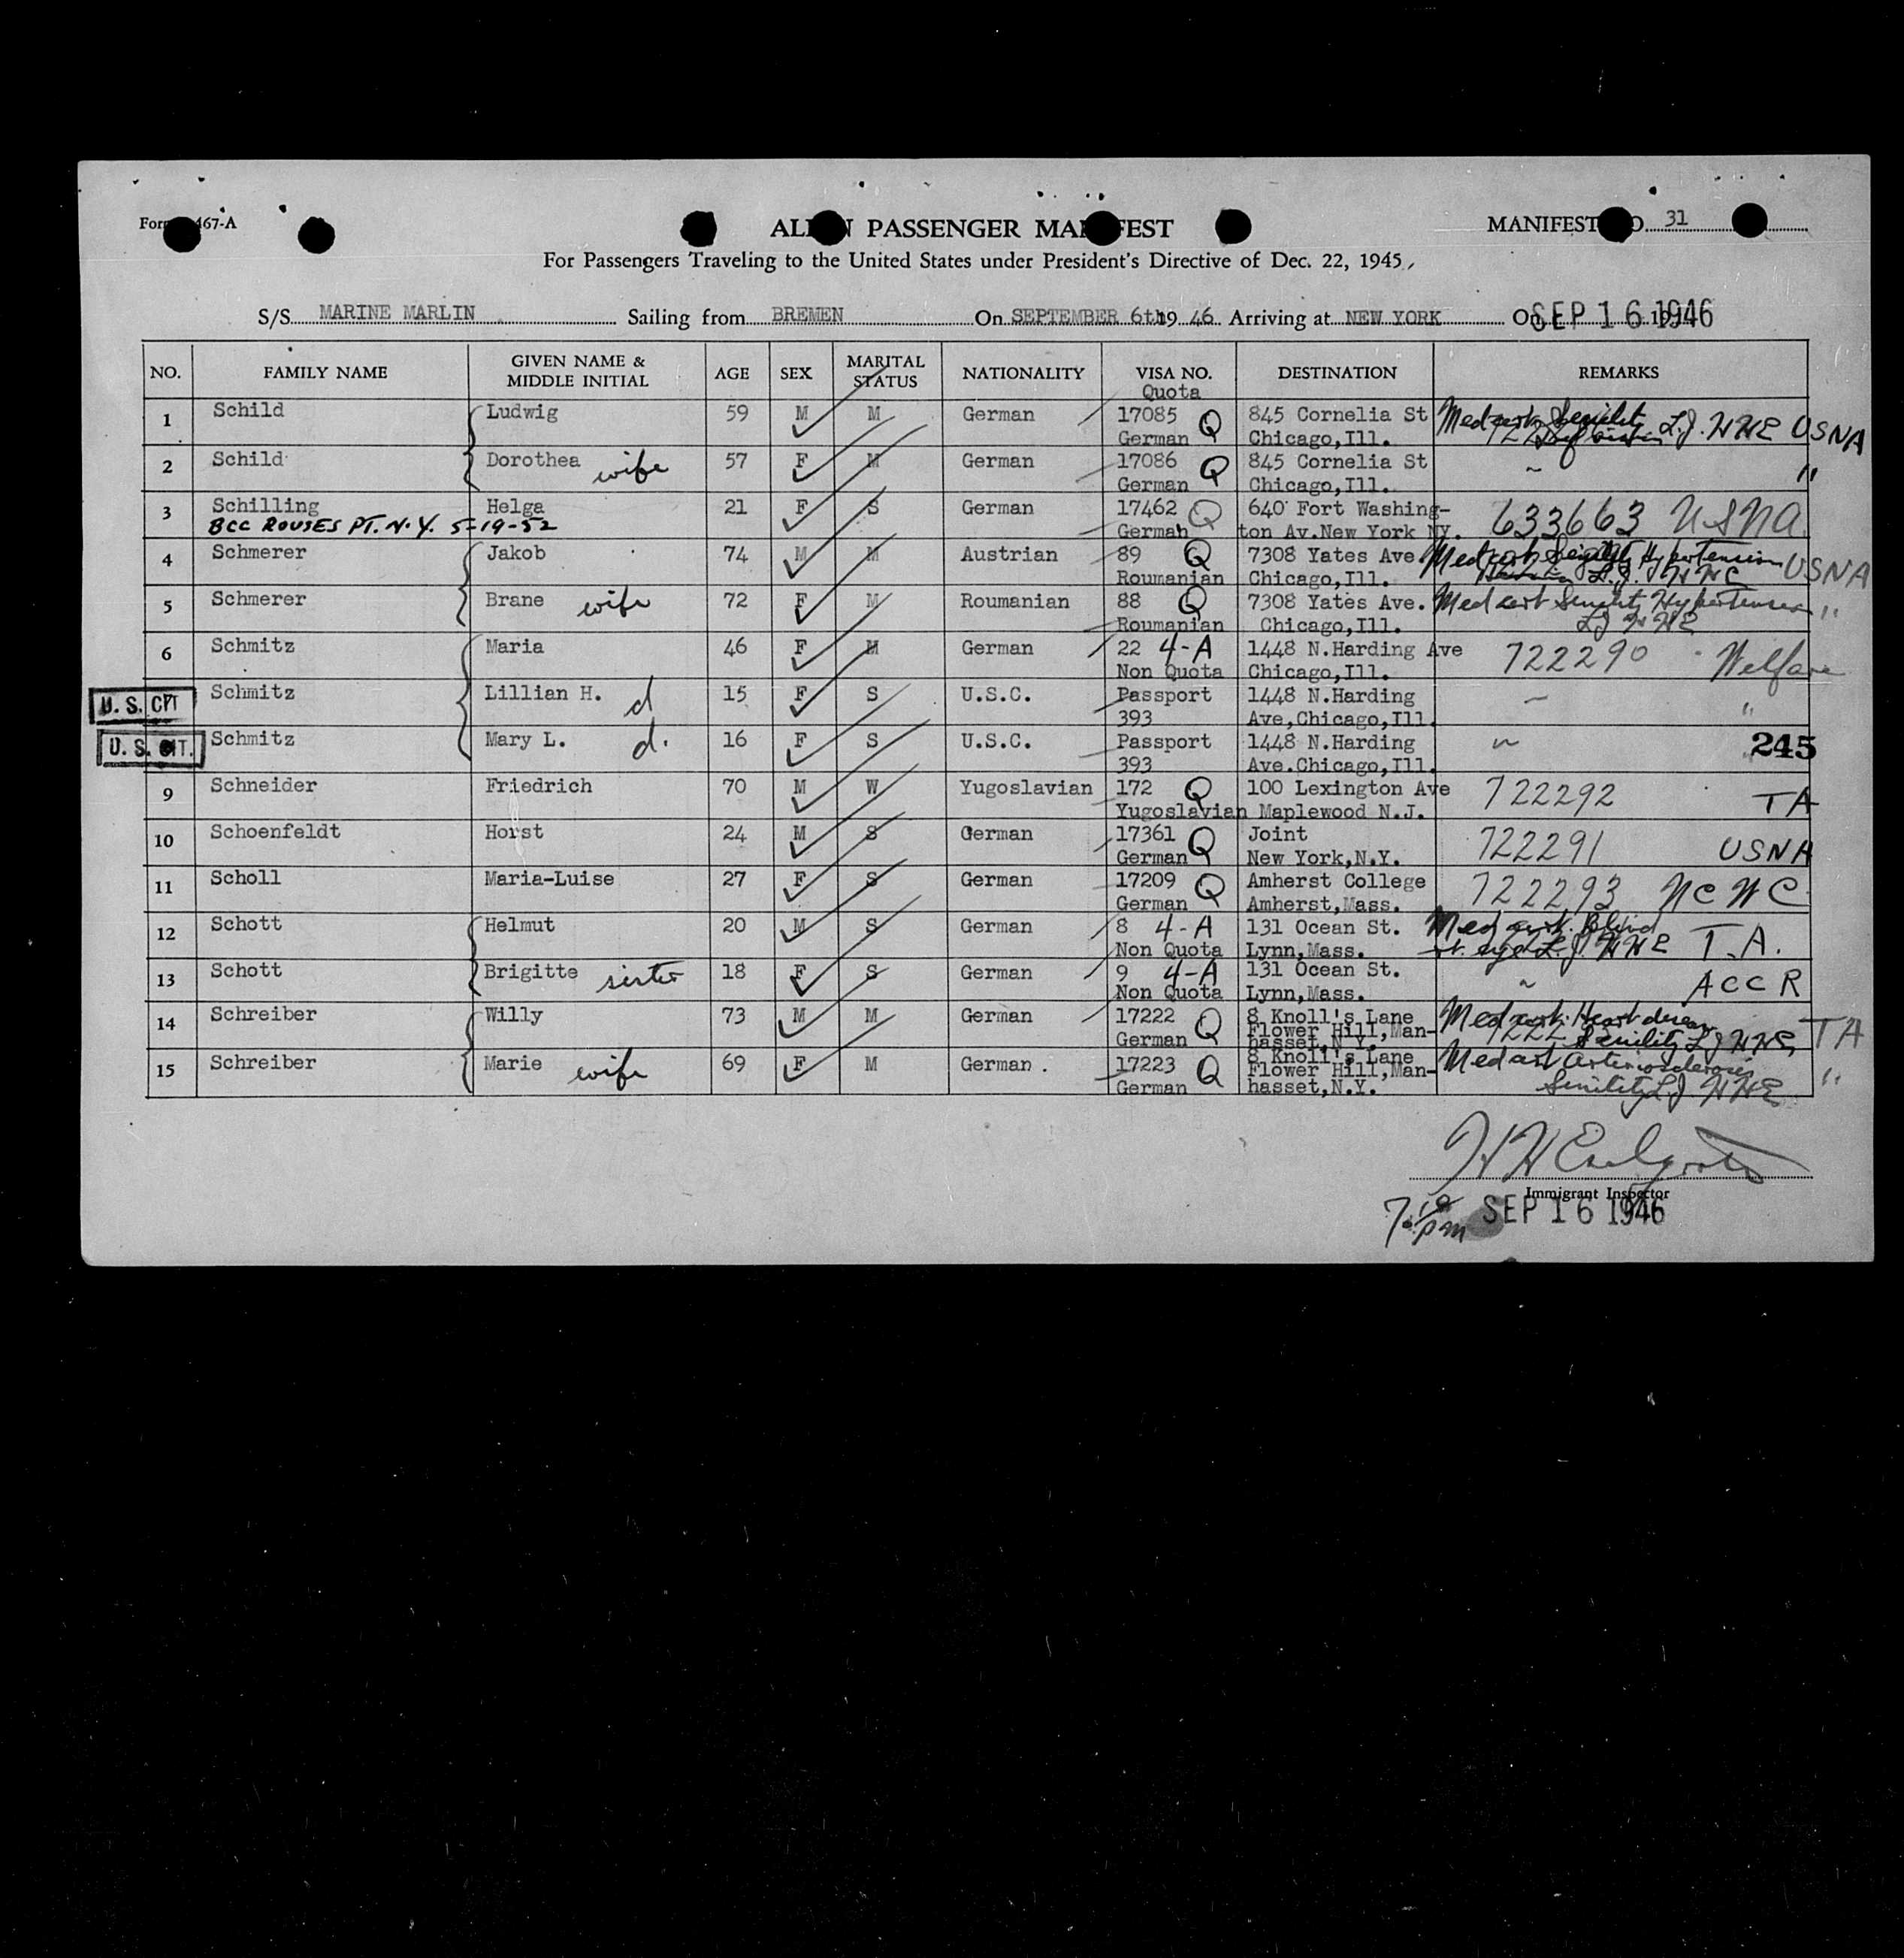 Form 467-A
ALIEN PASSENGER MANIFEST
MANIFEST NO 31
For Passengers Traveling to the United States under President's Directive of Dec. 22, 1945
S/S MARINE MARLIN Sailing from BREMEN On SEPTEMBER 6th 19 46 Arriving at NEW YORK On SEP 16 1946
NO. FAMILY NAME GIVEN NAME & MIDDLE INITIAL AGE SEX MARITAL STATUS NATIONALITY VISA NO. DESTINATION REMARKS
Quota
1 Schild Ludwig 59 M M German 17085 Q 845 Cornelia St Med cert Senility L.J. HHE USNA
German Chicago,Ill.
2 Schild Dorothea wife 57 F M German 17086 Q 845 Cornelia St ~ "
German Chicago,Ill.
3 Schilling Helga 21 F S German 17462 Q 640 Fort Washing- 633663 USNA
BCC ROUSES PT. N.Y. 5-19-52 German ton Av.New York NY.
4 Schmerer Jakob 74 M M Austrian 89 Q 7308 Yates Ave. Med cert Senility Hypertension USNA
Roumanian Chicago,Ill. L.J. HHE
5 Schmerer Brane wife 72 F M Roumanian 88 Q 7308 Yates Ave. Med cert Senility Hypertension "
Roumanian Chicago,Ill. LJ HHE
6 Schmitz Maria 46 F M German 22 4-A 1448 N.Harding Ave 722290 Welfare
Non Quota Chicago,Ill.
U.S. CIT Schmitz Lillian H. d 15 F S U.S.C. Passport 1448 N.Harding ~ "
393 Ave,Chicago,Ill.
U.S. CIT. Schmitz Mary L. d. 16 F S U.S.C. Passport 1448 N.Harding ~ 245
393 Ave.Chicago,Ill.
9 Schneider Friedrich 70 M W Yugoslavian 172 Q 100 Lexington Ave 722292 TA
Yugoslavian Maplewood N.J.
10 Schoenfeldt Horst 24 M S German 17361 Q Joint 722291 USNA
German New York,N.Y.
11 Scholl Maria-Luise 27 F S German 17209 Q Amherst College 722293 NCWC
German Amherst,Mass.
12 Schott Helmut 20 M S German 8 4-A 131 Ocean St. Med cert. Blind
Non Quota Lynn,Mass. rt. eye L.J. HHE T.A.
13 Schott Brigitte sister 18 F S German 9 4-A 131 Ocean St. ~ ACCR
Non Quota Lynn,Mass.
14 Schreiber Willy 73 M M German 17222 Q 8 Knoll's Lane Med cert. Heart disease
German Flower Hill,Man- Senility LJ HHE TA
hasset,N.Y.
15 Schreiber Marie wife 69 F M German. 17223 Q 8 Knoll's Lane Med cert Arteriosclerosis
German Flower Hill,Man- Senility L.J. HHE "
hasset,N.Y.
Immigrant Inspector
SEP 16 1946